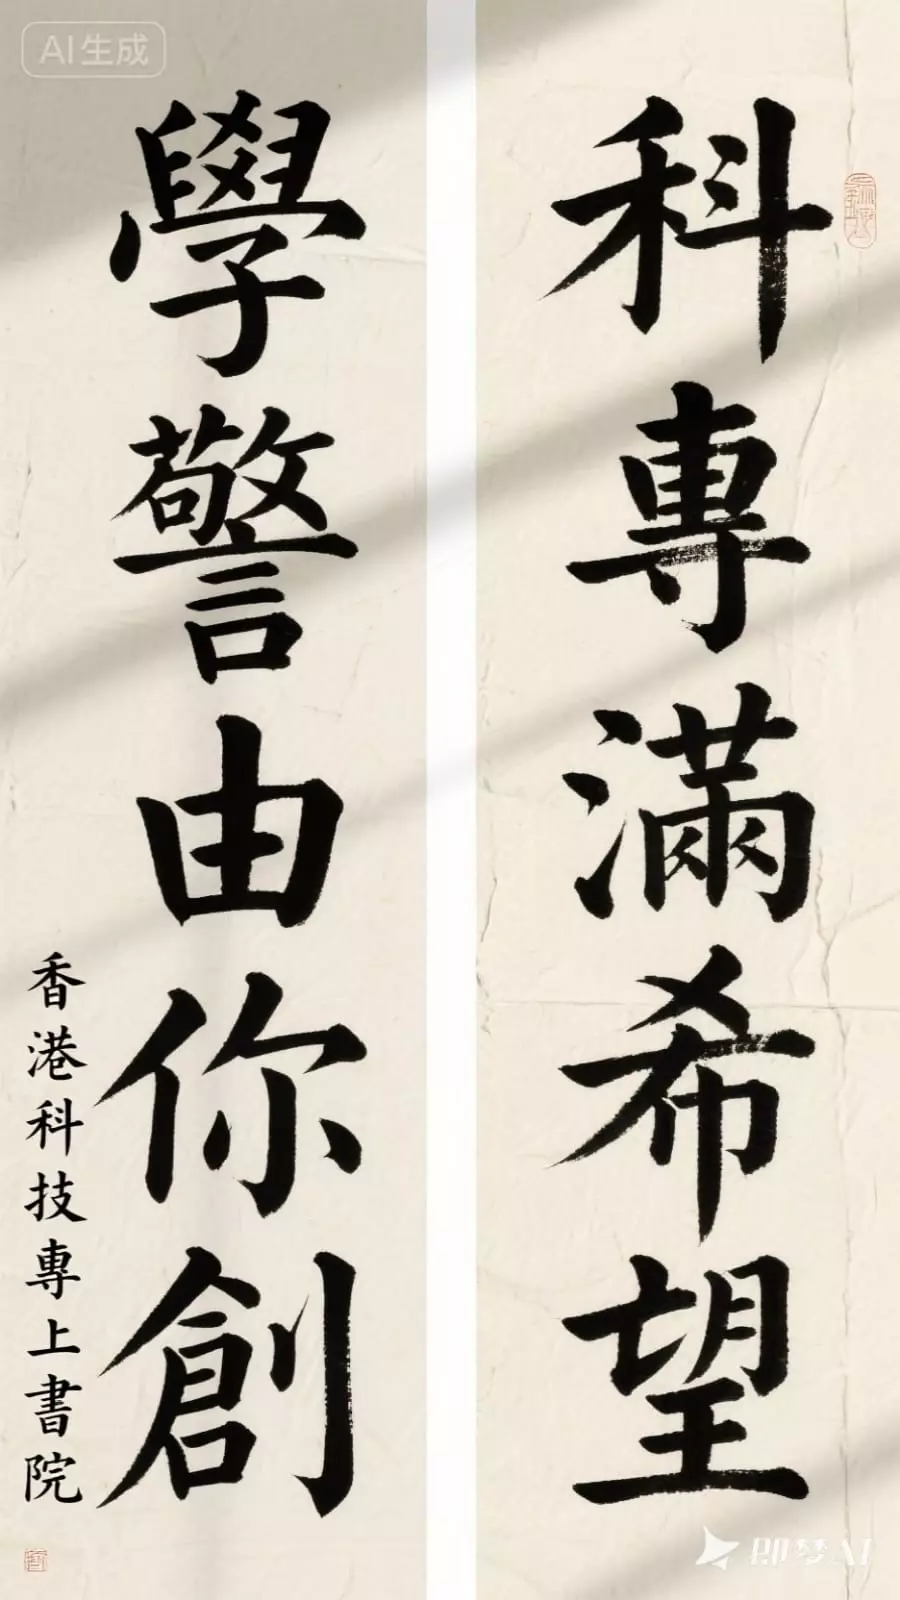 科專滿希望
學警由你創
香港科技專上書院
AI生成
即梦AI